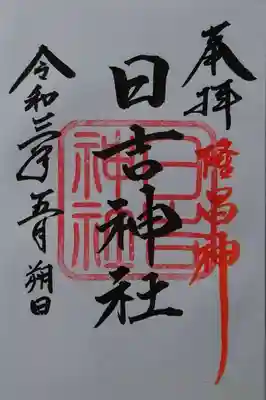 奉拝
日吉神社
日吉
神社
令和三年五月朔日